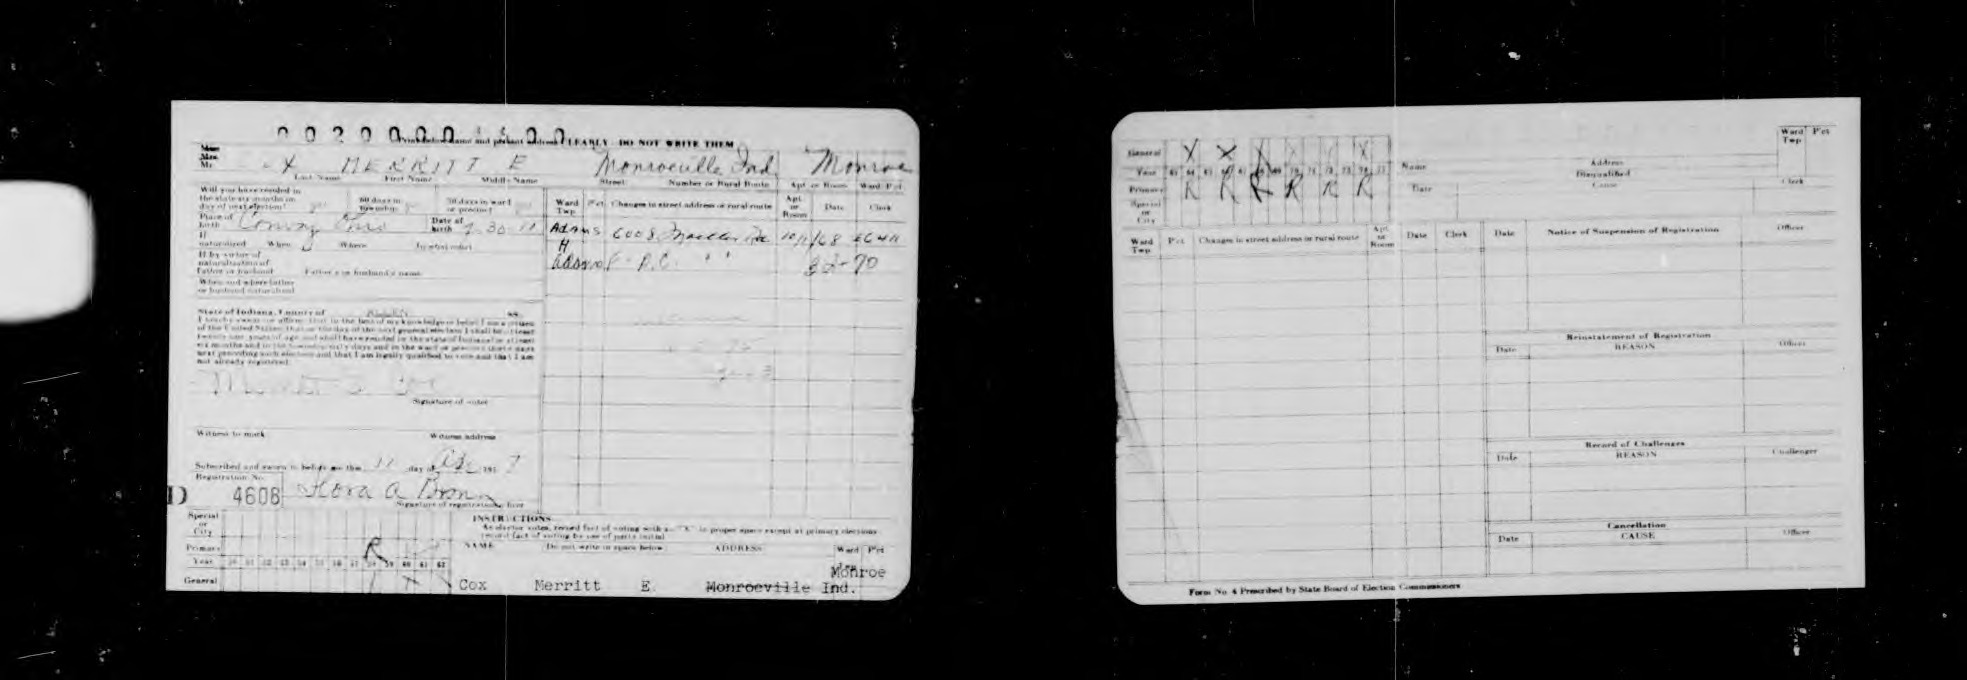 Print below name and present address CLEARLY - DO NOT WRITE THEM
Miss
Mrs.
Mr.
MERRITT E Monroeville Ind. Monroe
Last Name First Name Middle Name Street Number or Rural Route Apt. or Room Ward Pct.
Will you have resided in
the state six months on
day of next election?
60 days in
Township
30 days in ward
or precinct
Ward
Twp.
Pct.
Changes in street address or rural route
Apt.
or
Room
Date
Clerk
Place of
birth
Date of
birth
Adams 6008 10/11/68
If
naturalized When Where By what court
Adams
If by virtue of
naturalization of
father or husband Father's or husband's name
When and where father
or husband naturalized
State of Indiana, County of ALLEN ss.
I hereby swear (or affirm) that to the best of my knowledge or belief I am a citizen
of the United States; that on the day of the next general election I shall be at least
twenty-one years of age and shall have resided in the state of Indiana for at least
six months and in the township sixty days and in the ward or precinct thirty days
next preceding such election and that I am legally qualified to vote and that I am
not already registered.
Signature of voter
Witness to mark Witness address
Subscribed and sworn to before me this 11 day of
Registration No.
D 4608 Flora A
Signature of registration officer
Special
or
City
INSTRUCTIONS
As elector votes, record fact of voting with an "X" in proper space except at primary elections
record fact of voting by use of party initial
Primary R
NAME Do not write in space below ADDRESS Ward Pct.
Year 50 51 52 53 54 55 56 57 58 59 60 61 62
General
Monroe
Cox Merritt E. Monroeville Ind.
General X X X X X X
Year
Primary R R R R R R
Special
or
City
Name Address
Disqualified
Date Cause Clerk
Ward
Twp
Pct
Ward
Twp.
Pct. Changes in street address or rural route
Apt.
or
Room
Date Clerk
Date Notice of Suspension of Registration Officer
Reinstatement of Registration
Date REASON Officer
Record of Challenges
Date REASON Challenger
Cancellation
Date CAUSE Officer
Form No. 4 Prescribed by State Board of Election Commissioners